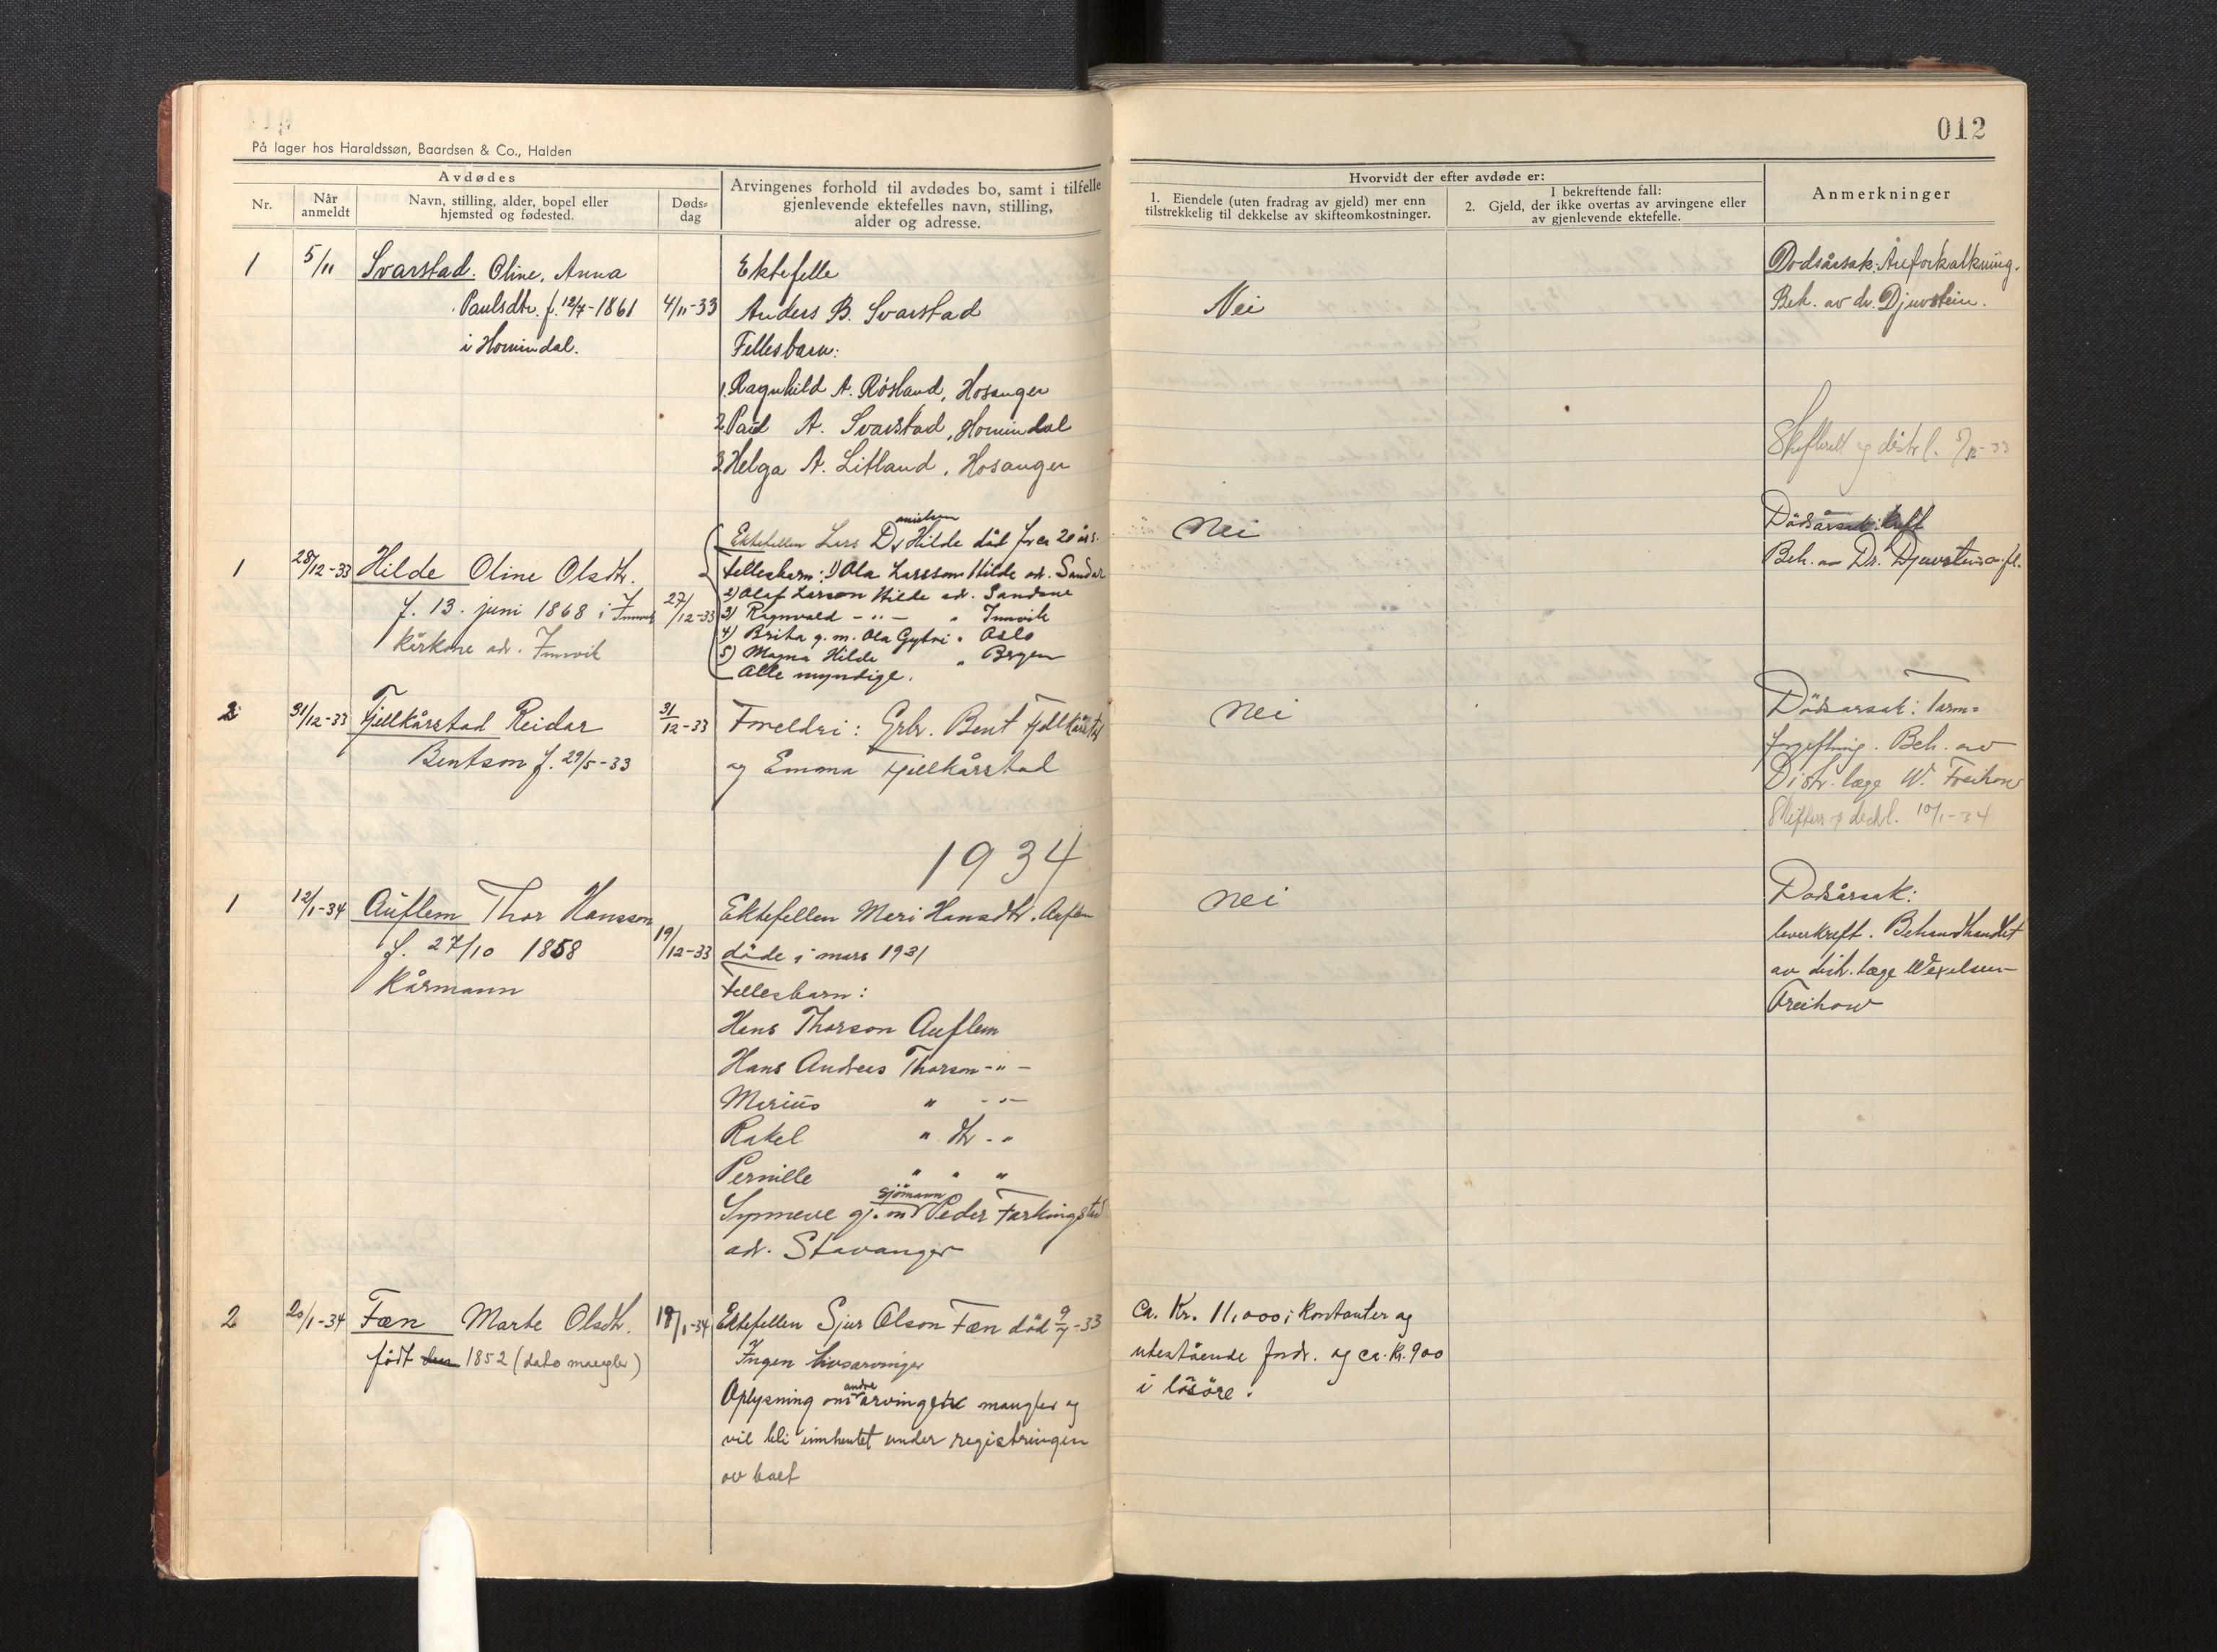 012
På lager hos Haraldssøn, Baardsen & Co., Halden
Avdødes
Nr.
Når anmeldt
Navn, stilling, alder, bopel eller hjemsted og fødested.
Døds-dag
Arvingenes forhold til avdødes bo, samt i tilfelle gjenlevende ektefelles navn, stilling, alder og adresse.
Hvorvidt der efter avdøde er:
1. Eiendele (uten fradrag av gjeld) mer enn tilstrekkelig til dekkelse av skifteomkostninger.
I bekreftende fall:
2. Gjeld, der ikke overtas av arvingene eller av gjenlevende ektefelle.
Anmerkninger
1 5/11 Svarstad. Oline, Anna
Paulsdtr. f. 12/7-1861 4/11-33
i Hornindal.
Ektefelle
Anders B. Svarstad
Fellesbarn:
1. Ragnhild A. Røsland, Hosanger
2. Paul A. Svarstad, Hornindal
3. Helga A. Litland, Hosanger
Nei
Dødsårsak: Åreforkalkning.
Beh. av dr. Djuvstein.
Skifterett og distr l. 5/12-33
1 28/12-33 Hilde Oline Olsdtr.
f. 13. juni 1868 i Innvik 27/12-33
kårkone adr. Innvik
Ektefellen Lars Danielsen Hilde död for ca 20 år s.
Fellesbarn: 1) Ola Larsson Hilde adr. Sandar
2) Olaf Larson Hilde adr. Sandane
3) Ragnvald - " - " Innvik
4) Brita g. m. Ola Gytri " Oslo
5) Magna Hilde " Bergen
Alle myndige.
Nei
Dödsårsak:
Beh. av Dr. Djuvstein o. fl.
2 31/12-33 Fjellkårstad Reidar 31/12-33
Bentson f. 29/5-33
Foreldri: Grbr. Bent Fjellkårstad
og Emma Fjellkårstad
Nei
Dödsarsak: Tarm-
forgiftning. Beh. av
Distr. læge W. Freihow
Skifterr. og distr l. 10/1-34
1934
1 12/1-34 Auflem Thor Hansson
f. 27/10 1858 19/12-33
Kårmann
Ektefellen Mari Hansdtr. Auflem
döde i mars 1931
Fellesbarn:
Hans Thorson Auflem
Hans Andreas Thorson - " -
Marius " - " -
Rakel " dtr - "
Pernille " " "
Synneve gj. m. sjömann Peder Farkingstad
adr. Stavanger
Nei
Dødsårsak:
leverkreft. Behandhandlet
av distr. læge Wexelsen-
Freihow
2 20/1-34 Fæn Marte Olsdtr. 18/1-34
födt den 1852 (dato mangler)
Ektefellen Sjur Olson Fæn död 9/7-33
Ingen livsarvinger
Oplysning om andre arvinger mangler og
vil bli innhentet under registringen
av boet
Ca. Kr. 11,000 i kontanter og
utestående fordr. og ca. kr. 900
i lösöre.